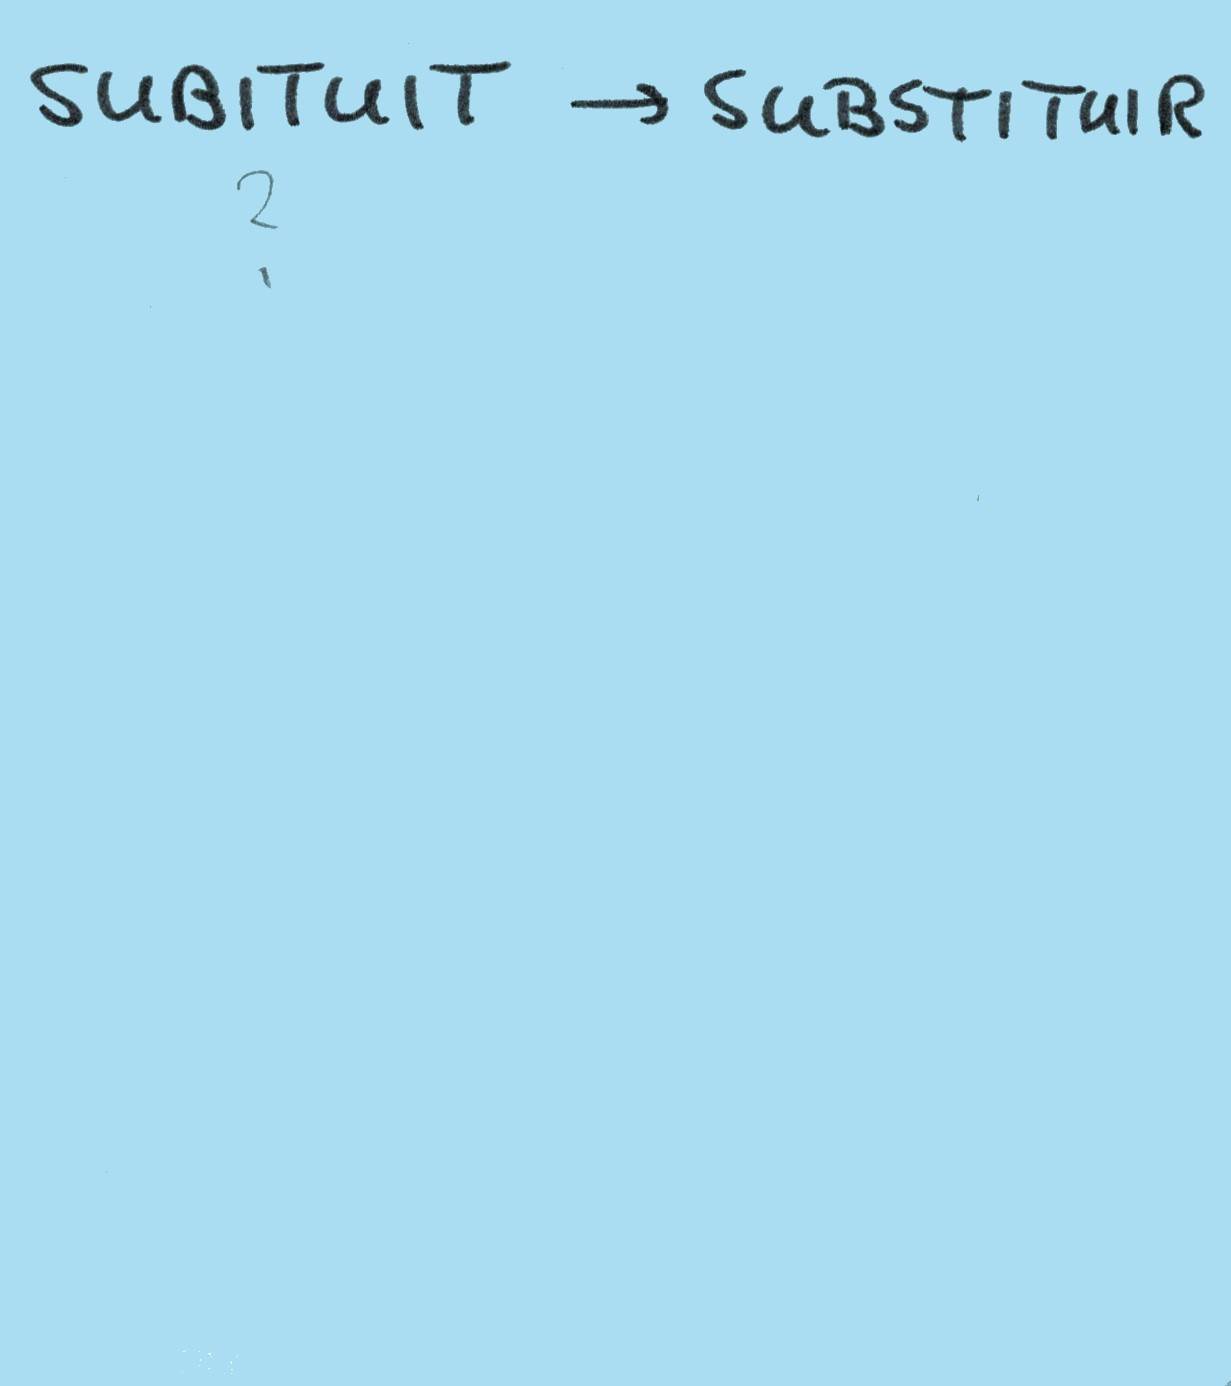 SUBITUIT → SUBSTITUIR
?